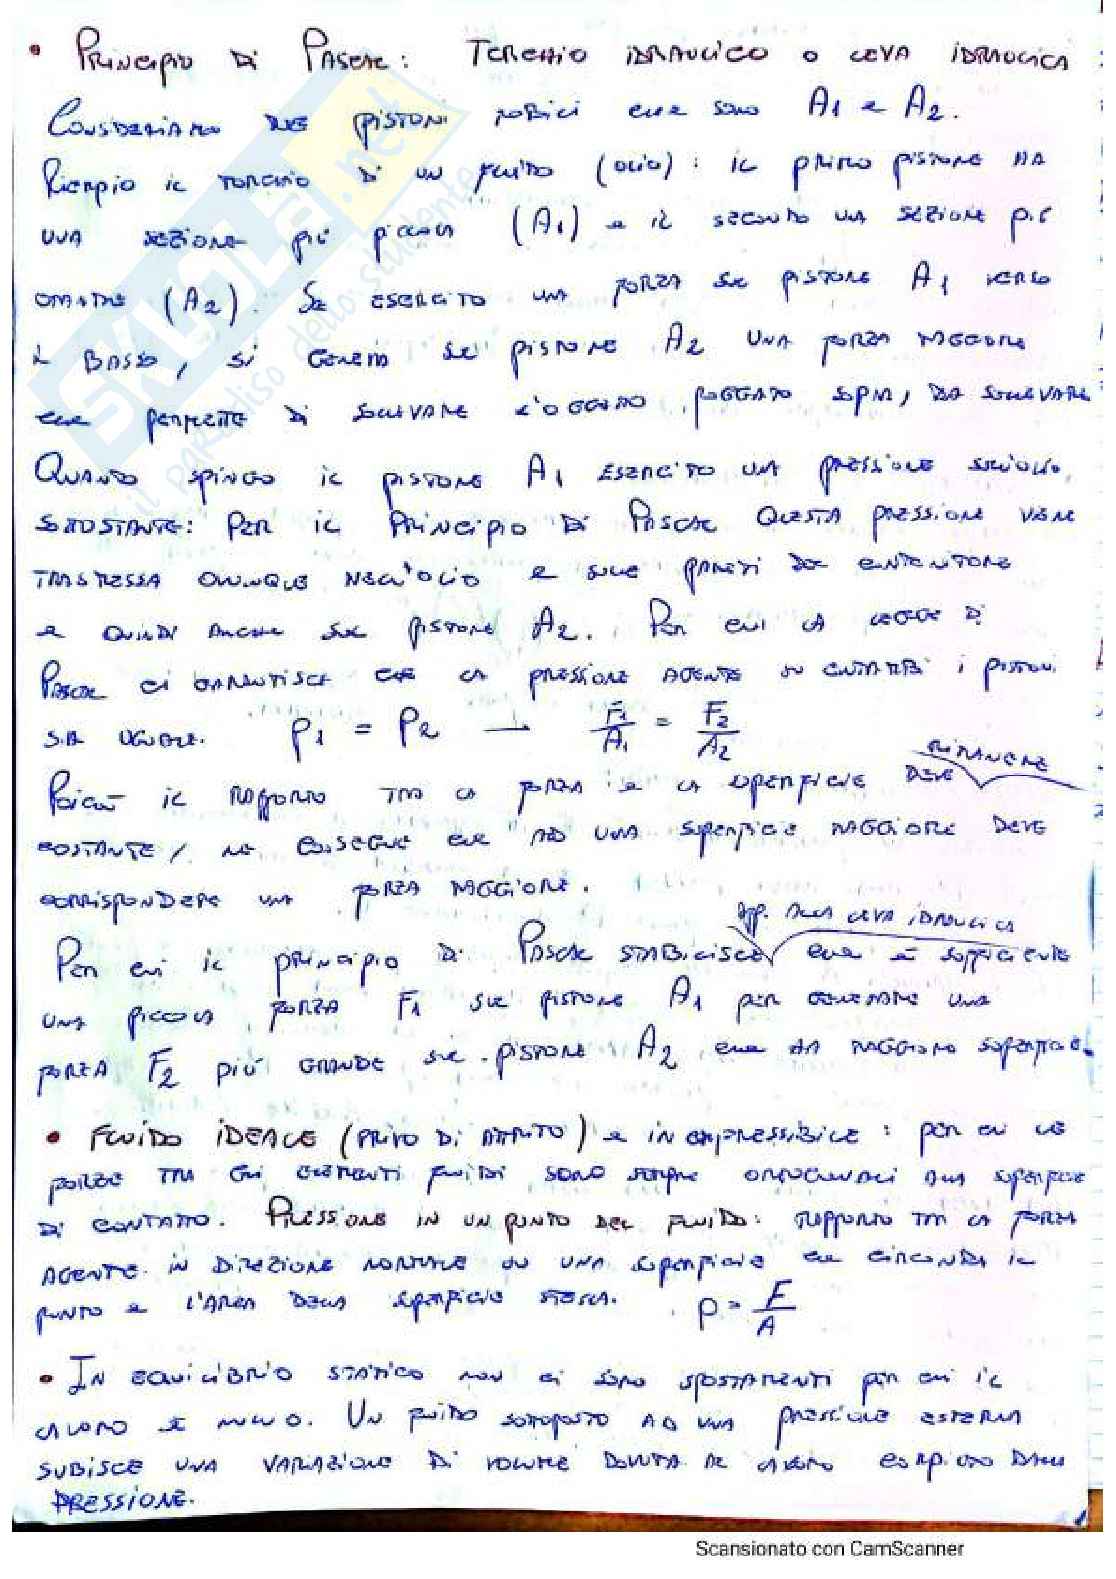 • Principio di Pascal: Torchio idraulico o leva idraulica
Consideriamo due pistoni mobili che sono A1 e A2.
Riempio il torchio di un fluido (olio): il primo pistone ha
una sezione più piccola (A1) e il secondo una sezione più
grande (A2). Se esercito una forza sul pistone A1 verso
il basso, si genera sul pistone A2 una forza maggiore
che permette di sollevare l'oggetto poggiato sopra, da sollevare
Quando spingo il pistone A1 esercito una pressione sull'olio
sottostante: per il Principio di Pascal questa pressione viene
trasmessa ovunque nell'olio e sulle pareti del contenitore
e quindi anche sul pistone A2. Per cui la legge di
Pascal ci garantisce che la pressione agente su entrambi i pistoni
sia uguale. p1 = p2 → F1/A1 = F2/A2
rimanere
Poiché il rapporto tra la forza e la superficie deve
costante, ne consegue che ad una superficie maggiore deve
corrispondere una forza maggiore.
app. alla leva idraulica
Per cui il principio di Pascal stabilisce che è sufficiente
una piccola forza F1 sul pistone A1 per generare una
forza F2 più grande sul pistone A2 che ha maggiore superficie.
• Fluido ideale (privo di attrito) e incompressibile: per cui le
forze tra gli elementi fluidi sono sempre ortogonali alla superficie
di contatto. Pressione in un punto del fluido: rapporto tra la forza
agente in direzione normale su una superficie che circonda il
punto e l'area della superficie stessa. p = F/A
• In equilibrio statico non ci sono spostamenti per cui il
lavoro è nullo. Un fluido sottoposto ad una pressione esterna
subisce una variazione di volume dovuta al lavoro compiuto dalla
pressione.
SKUOLA.net
il paradiso dello studente
Scansionato con CamScanner